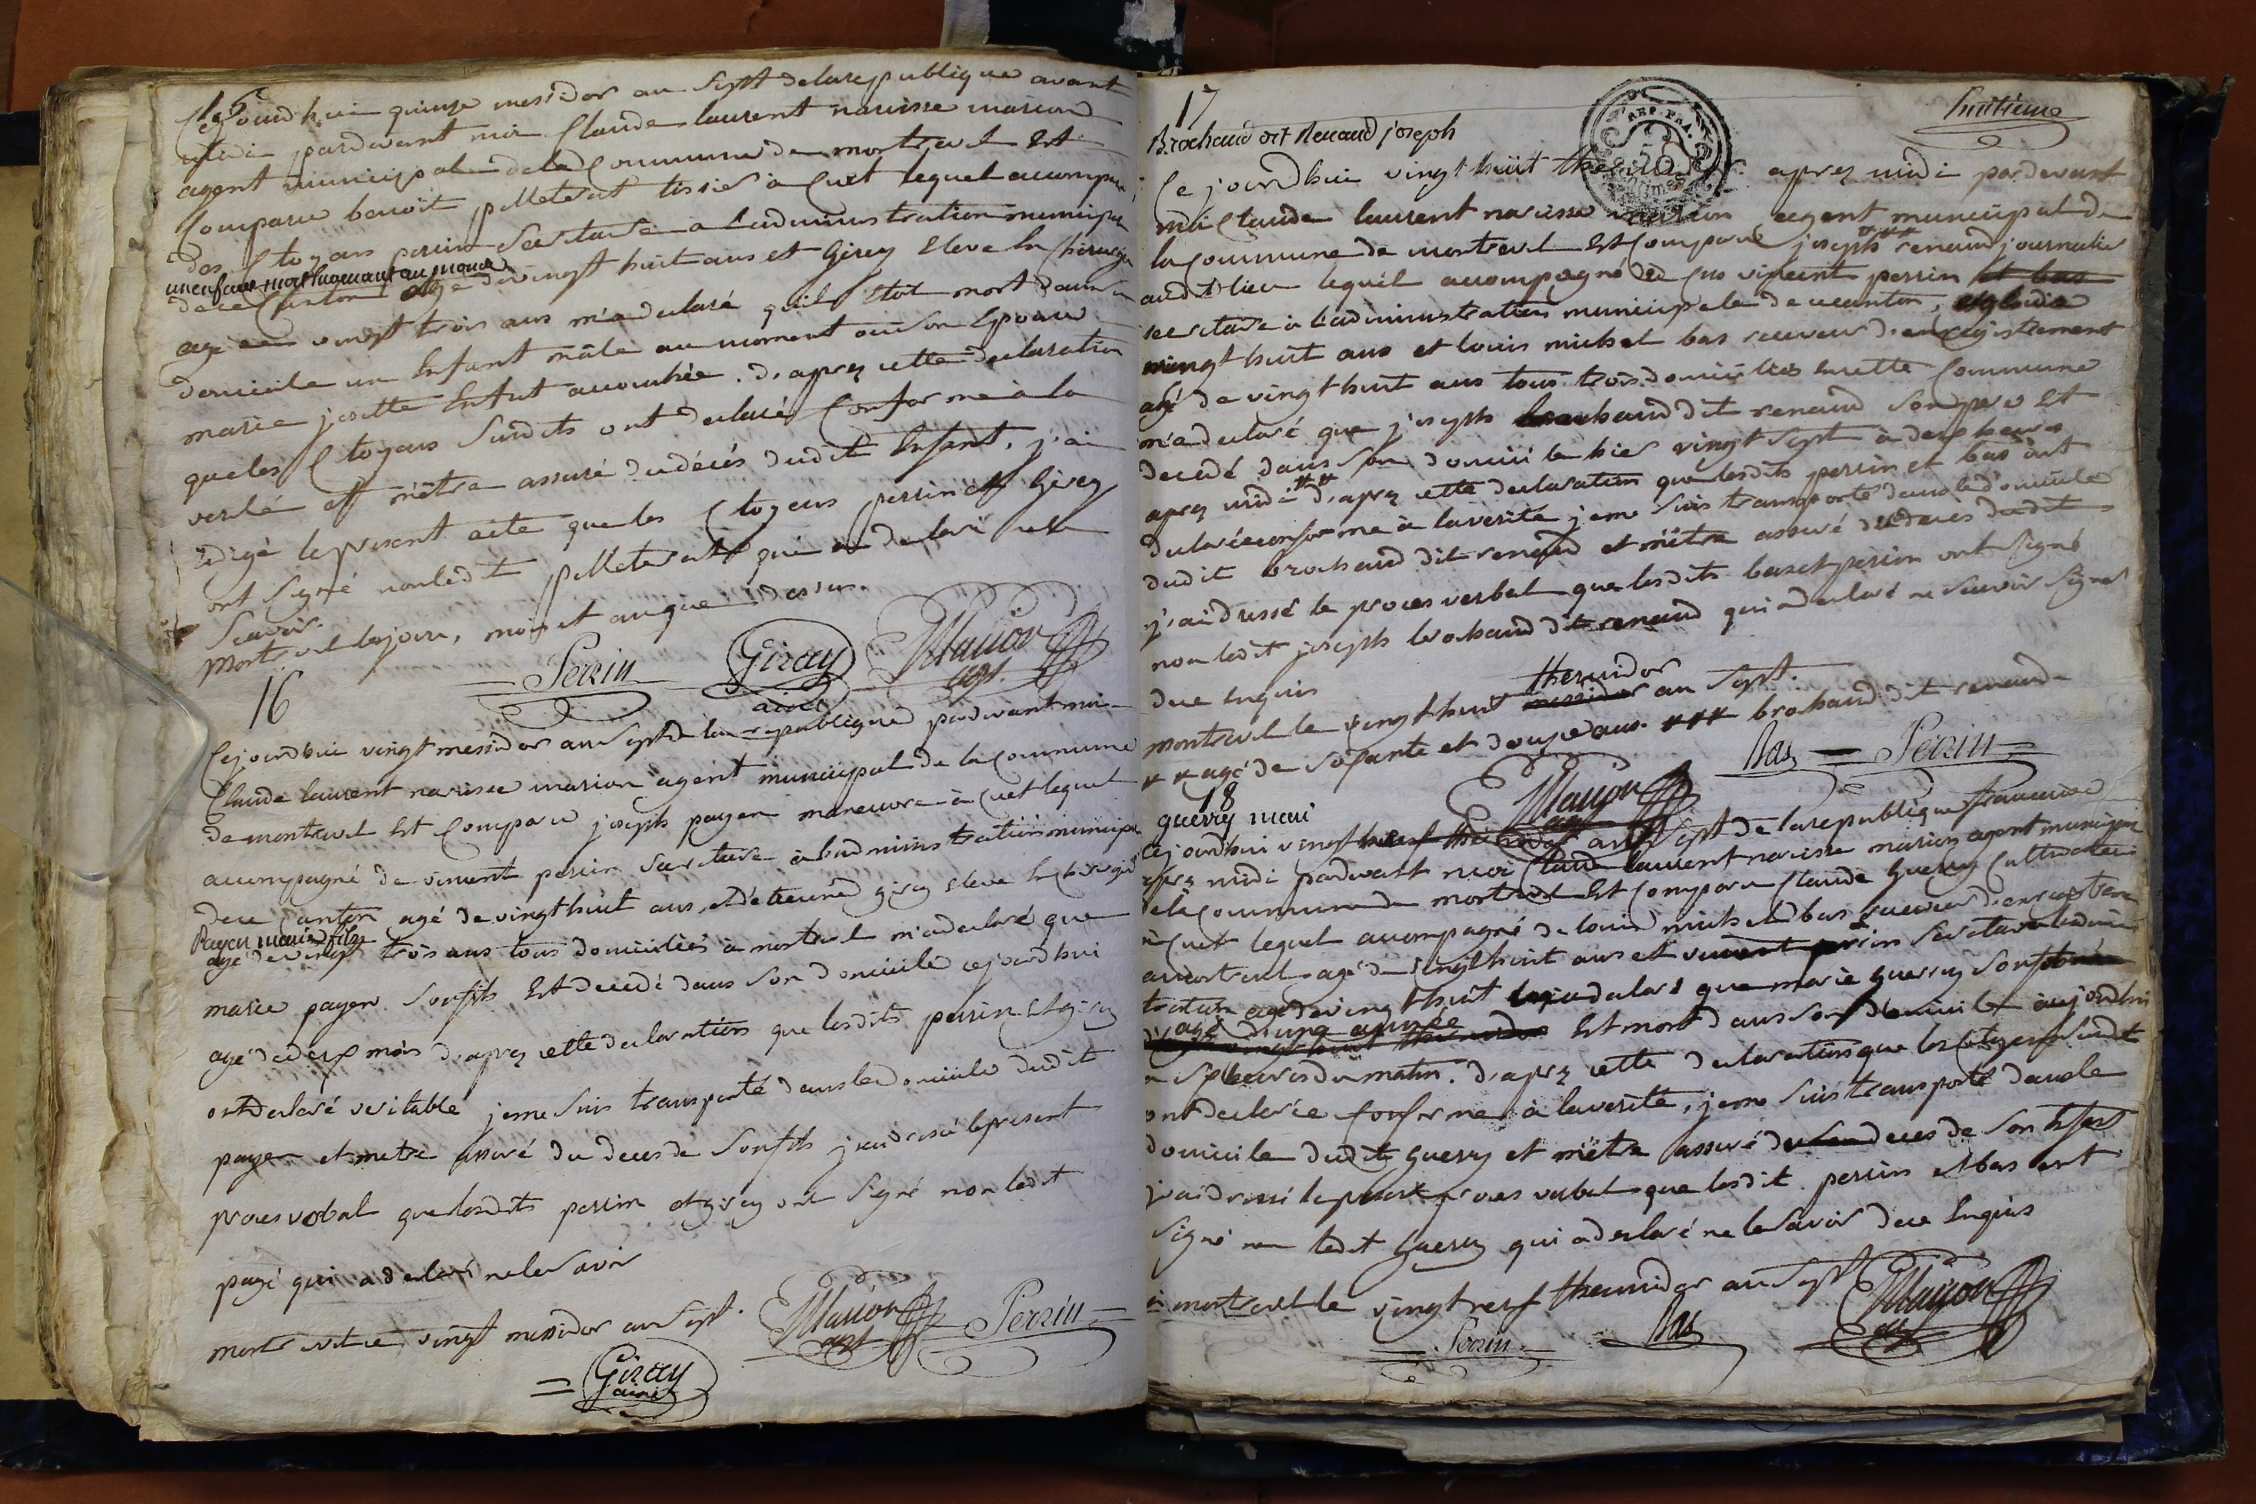 15
Cejourd'hui quinze messidor an sept de la republique avant
midi pardevant moi Claude laurent narcisse marion
agent municipal de la Commune de montrevel Est
Comparu benoit pelleterat tissier à Cuet lequel accompagné
des Citoyens perrin secretaire a l'administration municipale
un enfant mort en venant au monde
de ce Canton agé de vingt huit ans et Giray Eleve En Chirurgie
agé de vingt trois ans m'a declaré quil etoit mort dans son
domicile un Enfant mâle au moment ou son Epouse
marie josette Enfut accouchée. d'aprez cette declaration
que les Citoyens susdits ont declaré Conforme à la
verité et m'être assuré du décés dudit Enfant, j'ai
rédigé le present acte que les Citoyens perrin et Girey
ont signé non ledit pelleterat qui a declaré ne le
scavoir.
Montrevel les jour, mois et an que dessus.
Perrin Giray ainé Marion agt.
16
Cejourdhui vingt messidor an sept de la republique pardevant moi
Claude laurent narcisse marion agent municipal de la Commune
de montrevel Est Comparu joseph payen maneuvre à Cuet lequel
accompagné de vincent perrin secretaire à l'administration municipale
de ce Canton agé de vingt huit ans, et d'etienne giray Eleve En Chirurgie
Payen marie fils
agé de vingt trois ans tous domiciliés à montrevel m'a declaré que
marie payen son fils Est decedé dans son domicile cejourdhui
agé de deux mois d'aprez cette declaration que lesdits perrin Et giray
ont declaré veritable je me suis transporté dans le domicile dudit
payen et m'etre assuré du deces de son fils j'ai dressé le present
proces verbal que lesdits perrin et giray ont signé non ledit
payé qui a declaré ne le savoir
montrevel ce vingt messidor an sept.
Marion agt Perrin
Giray ainé
17
huitieme
REP. FRA.
Brochaud dit Renaud joseph
Ce jourdhui vingt huit thermidor aprez midi pardevant
moi Claude laurent narcisse marion agent municipal de
la Commune de montrevel Est Comparu joseph *** renaud journalier
audit lieu lequel accompagné de vincent perrin et bas
secretaire à l'administration municipale de ce canton, agé de
vingt huit ans et louis michel bas receveur d'enregistrement
agé de vingt huit ans tous trois domiciliés en cette Commune
m'a declaré que joseph brochaud dit renaud son pere Est
decedé dans son domicile hier vingt sept à deux heures
aprez midi ** d'aprez cette declaration que lesdits perrin et bas ont
declarée conforme à la verité je me suis transporté dans le domicile
dudit brochaud dit renaud et m'être assuré du deces dudit
j'ai dressé le proces verbal que lesdits bas et perrin ont signé
non ledit joseph brochaud dit renaud qui a declaré ne scavoir signer
due enquis
thermidor
montrevel le vingt huit messidor an sept.
** agé de soixante et douze ans. *** brochaud dit renaud
Marion agt Bas Perrin
18
guerry mari
Cejourdhui vingt neuf thermidor an sept de la republique francaise
aprez midi pardevant moi Claude laurent narcisse marion agent municipal
de la Commune de montrevel Est Comparu Claude Guerry Cultivateur
à Cuet lequel accompagné de louis michel bas receveur d'enregistrement
a montrevel agé de vingt huit ans et vincent perrin secretaire de l'adminis
tration agé de vingt huit m'a declaré que marie guerry son fils
agé d'une année
Est mort dans son domicile aujourdhui
a sept heures du matin. d'aprez cette declaration que les Citoyens susdit
ont declarée Conforme à la verité, je me suis transporté dans le
domicile dudit guerry et m'être assuré du deces de son Enfant
j'ai dressé le present proces verbal que lesdit perrin et bas ont
signé non ledit guerry qui a declaré ne le savoir de ce Enquis
à montrevel le vingt neuf thermidor an sept
Perrin Bas Marion agt